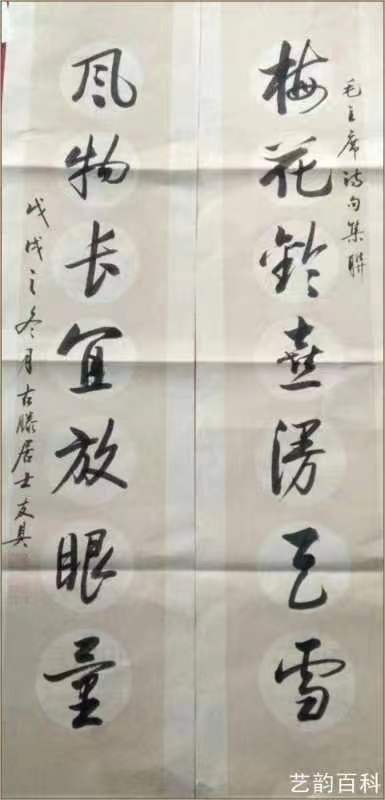 毛主席诗句集联
梅花欢喜漫天雪
风物长宜放眼量
戊戌之冬月古滕居士
艺韵百科